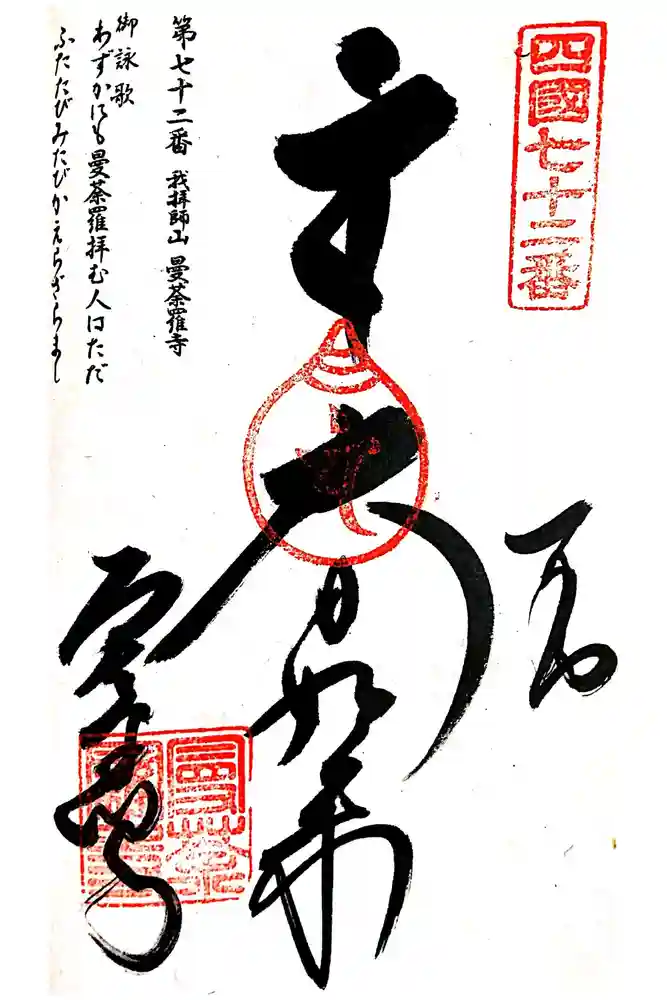 四國七十二番
奉納
大日如来
曼荼羅寺
第七十二番 我拝師山 曼荼羅寺
御詠歌
わずかにも曼荼羅拝む人はただ
ふたたびみたびかえらざらまし